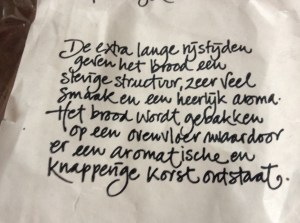 De extra lange rijstijden
geven het brood een
stevige structuur, zeer veel
smaak en een heerlijk aroma.
Het brood wordt gebakken
op een ovenvloer waardoor
er een aromatische en
knapperige korst ontstaat.